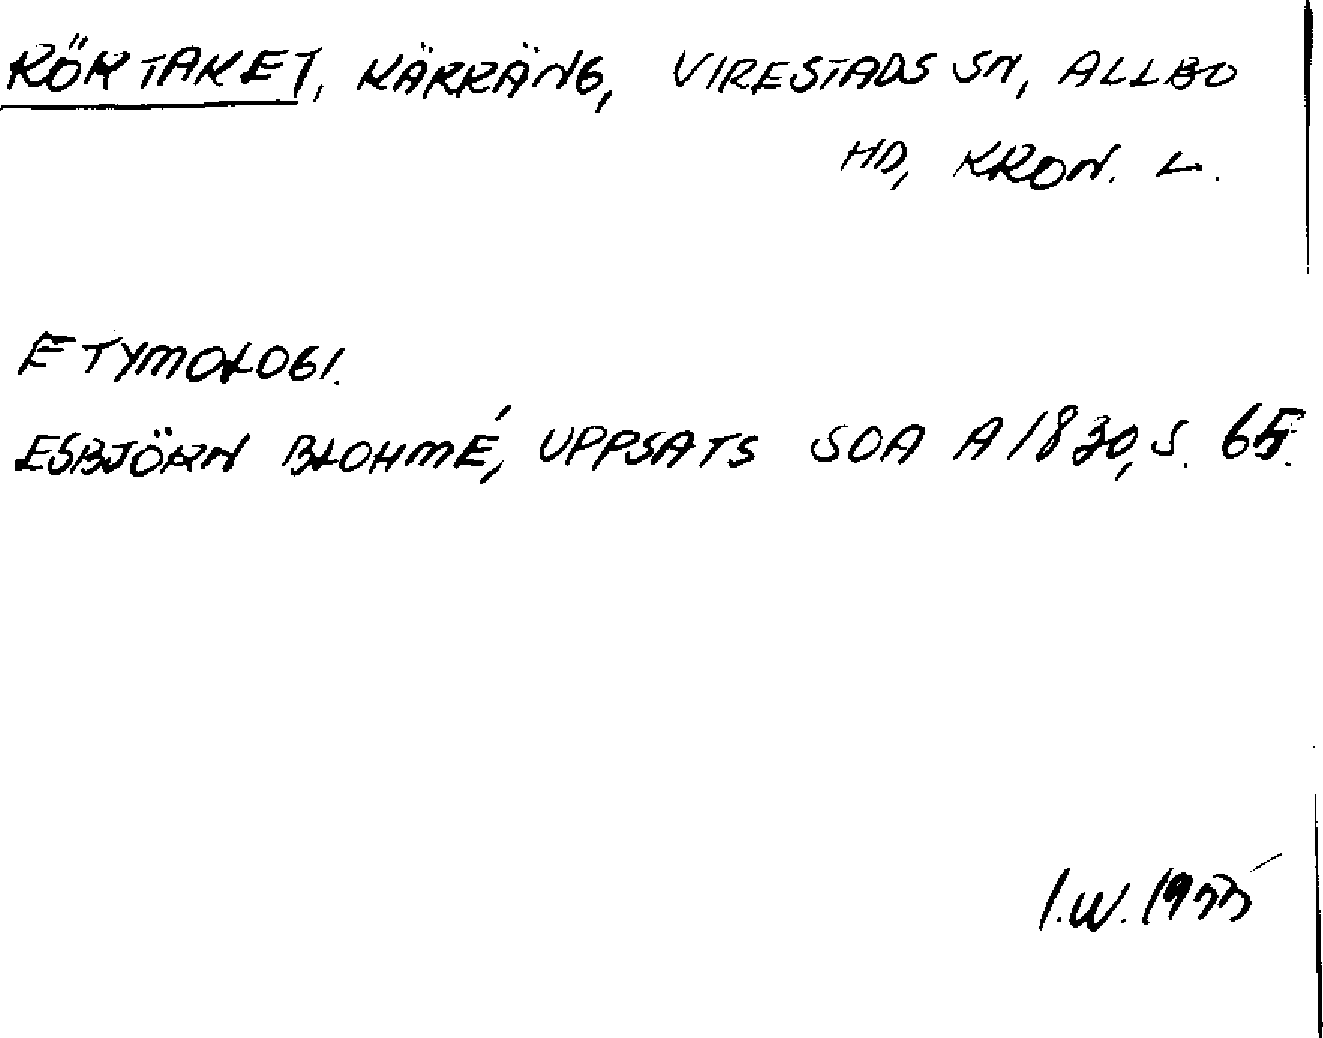 RÖKTAKET, KÄRRÄNG, VIRESTADS SN, ALLBO
HD, KRON. L.
ETYMOLOGI.
ESBJÖRN BLOHMÉ, UPPSATS SOA A 1830, S. 65.
I.W. 1955